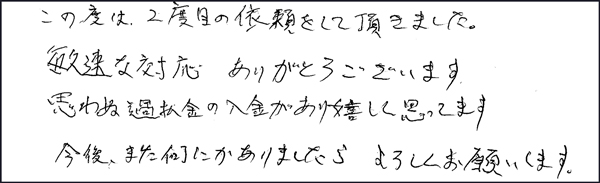 この度は、2度目の依頼をして頂きました。
敏速な対応 ありがとうございます
思わぬ過払金の入金があり嬉しく思ってます
今後、また何にかありましたら よろしくお願いします。